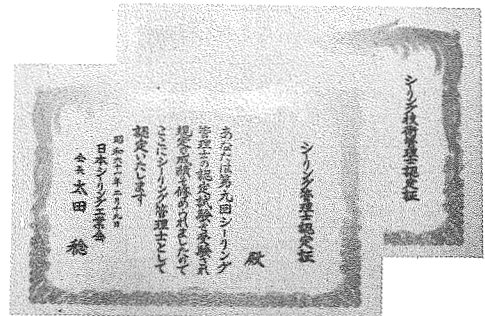 シーリング技術管理士認定証
シーリング管理士認定証
殿
あなたは第九回シーリング
管理士の認定試験を受験され
規定の成績を修められましたので
ここにシーリング管理士として
認定いたします
昭和六十一年二月十九日
日本シーリング工業会
会長 太田 稔